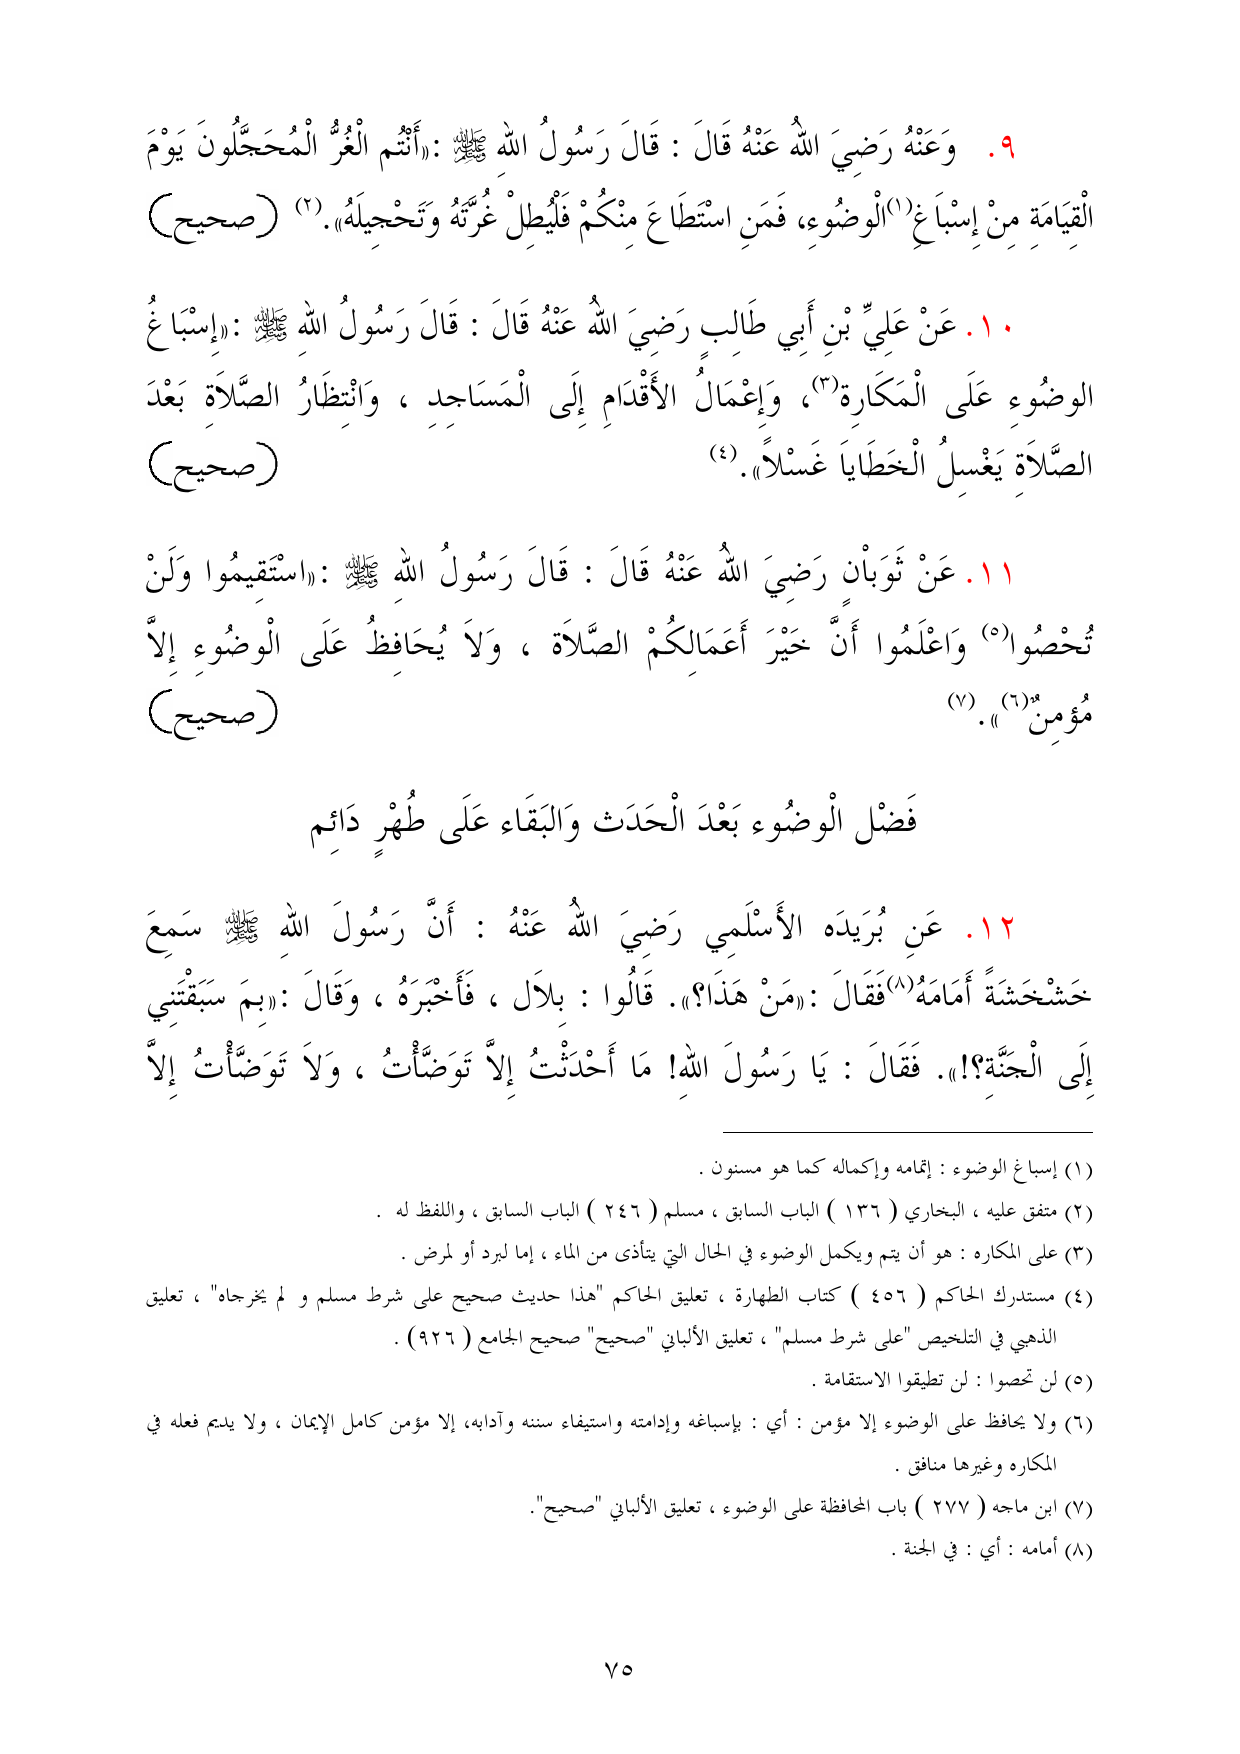 ٩. وَعَنْهُ رَضِيَ اللهُ عَنْهُ قَالَ : قَالَ رَسُولُ اللهِ ﷺ :«أَنْتُم الْغُرُّ الْمُحَجَّلُونَ يَوْمَ
الْقِيَامَةِ مِنْ إِسْبَاَغِ(١)الْوضُوءِ، فَمَنِ اسْتَطَاعَ مِنْكُمْ فَلْيُطِلْ غُرَّتَهُ وَتَحْجِيلَهُ».(٢) (صحيح)
١٠. عَنْ عَلِيِّ بْنِ أَبِي طَالِبٍ رَضِيَ اللهُ عَنْهُ قَالَ : قَالَ رَسُولُ اللهِ ﷺ :«إِسْبَاغُ
الوضُوءِ عَلَى الْمَكَارِة(٣)، وَإِعْمَالُ الأَقْدَامِ إِلَى الْمَسَاجِدِ ، وَانْتِظَارُ الصَّلاَةِ بَعْدَ
الصَّلاَةِ يَغْسِلُ الْخَطَاياَ غَسْلاً».(٤) (صحيح)
١١. عَنْ ثَوَبْاْنٍ رَضِيَ اللهُ عَنْهُ قَالَ : قَالَ رَسُولُ اللهِ ﷺ :«اسْتَقِيمُوا وَلَنْ
تُحْصُوا(٥) وَاعْلَمُوا أَنَّ خَيْرَ أَعَمَالِكُمْ الصَّلاَة ، وَلاَ يُحَافِظُ عَلَى الْوضُوءِ إِلاَّ
مُؤمِنٌ(٦)».(٧) (صحيح)
فَضْل الْوضُوء بَعْدَ الْحَدَث وَالبَقَاء عَلَى طُهْرٍ دَائِم
١٢. عَنِ بُرَيدَه الأَسْلَمِي رَضِيَ اللهُ عَنْهُ : أَنَّ رَسُولَ اللهِ ﷺ سَمِعَ
خَشْخَشَةً أَمَامَهُ(٨)فَقَالَ :«مَنْ هَذَا؟». قَالُوا : بِلاَل ، فَأَخْبَرَهُ ، وَقَالَ :«بِمَ سَبَقْتَنِي
إِلَى الْجَنَّةِ؟!». فَقَالَ : يَا رَسُولَ اللهِ! مَا أَحْدَثْتُ إِلاَّ تَوَضَّأْتُ ، وَلاَ تَوَضَّأْتُ إِلاَّ
(١) إسباغ الوضوء : إتمامه وإكماله كما هو مسنون .
(٢) متفق عليه ، البخاري ( ١٣٦ ) الباب السابق ، مسلم ( ٢٤٦ ) الباب السابق ، واللفظ له .
(٣) على المكاره : هو أن يتم ويكمل الوضوء في الحال التي يتأذى من الماء ، إما لبرد أو لمرض .
(٤) مستدرك الحاكم ( ٤٥٦ ) كتاب الطهارة ، تعليق الحاكم "هذا حديث صحيح على شرط مسلم و لم يخرجاه" ، تعليق
الذهبي في التلخيص "على شرط مسلم" ، تعليق الألباني "صحيح" صحيح الجامع ( ٩٢٦) .
(٥) لن تحصوا : لن تطيقوا الاستقامة .
(٦) ولا يحافظ على الوضوء إلا مؤمن : أي : بإسباغه وإدامته واستيفاء سننه وآدابه، إلا مؤمن كامل الإيمان ، ولا يديم فعله في
المكاره وغيرها منافق .
(٧) ابن ماجه ( ٢٧٧ ) باب المحافظة على الوضوء ، تعليق الألباني "صحيح".
(٨) أمامه : أي : في الجنة .
٧٥